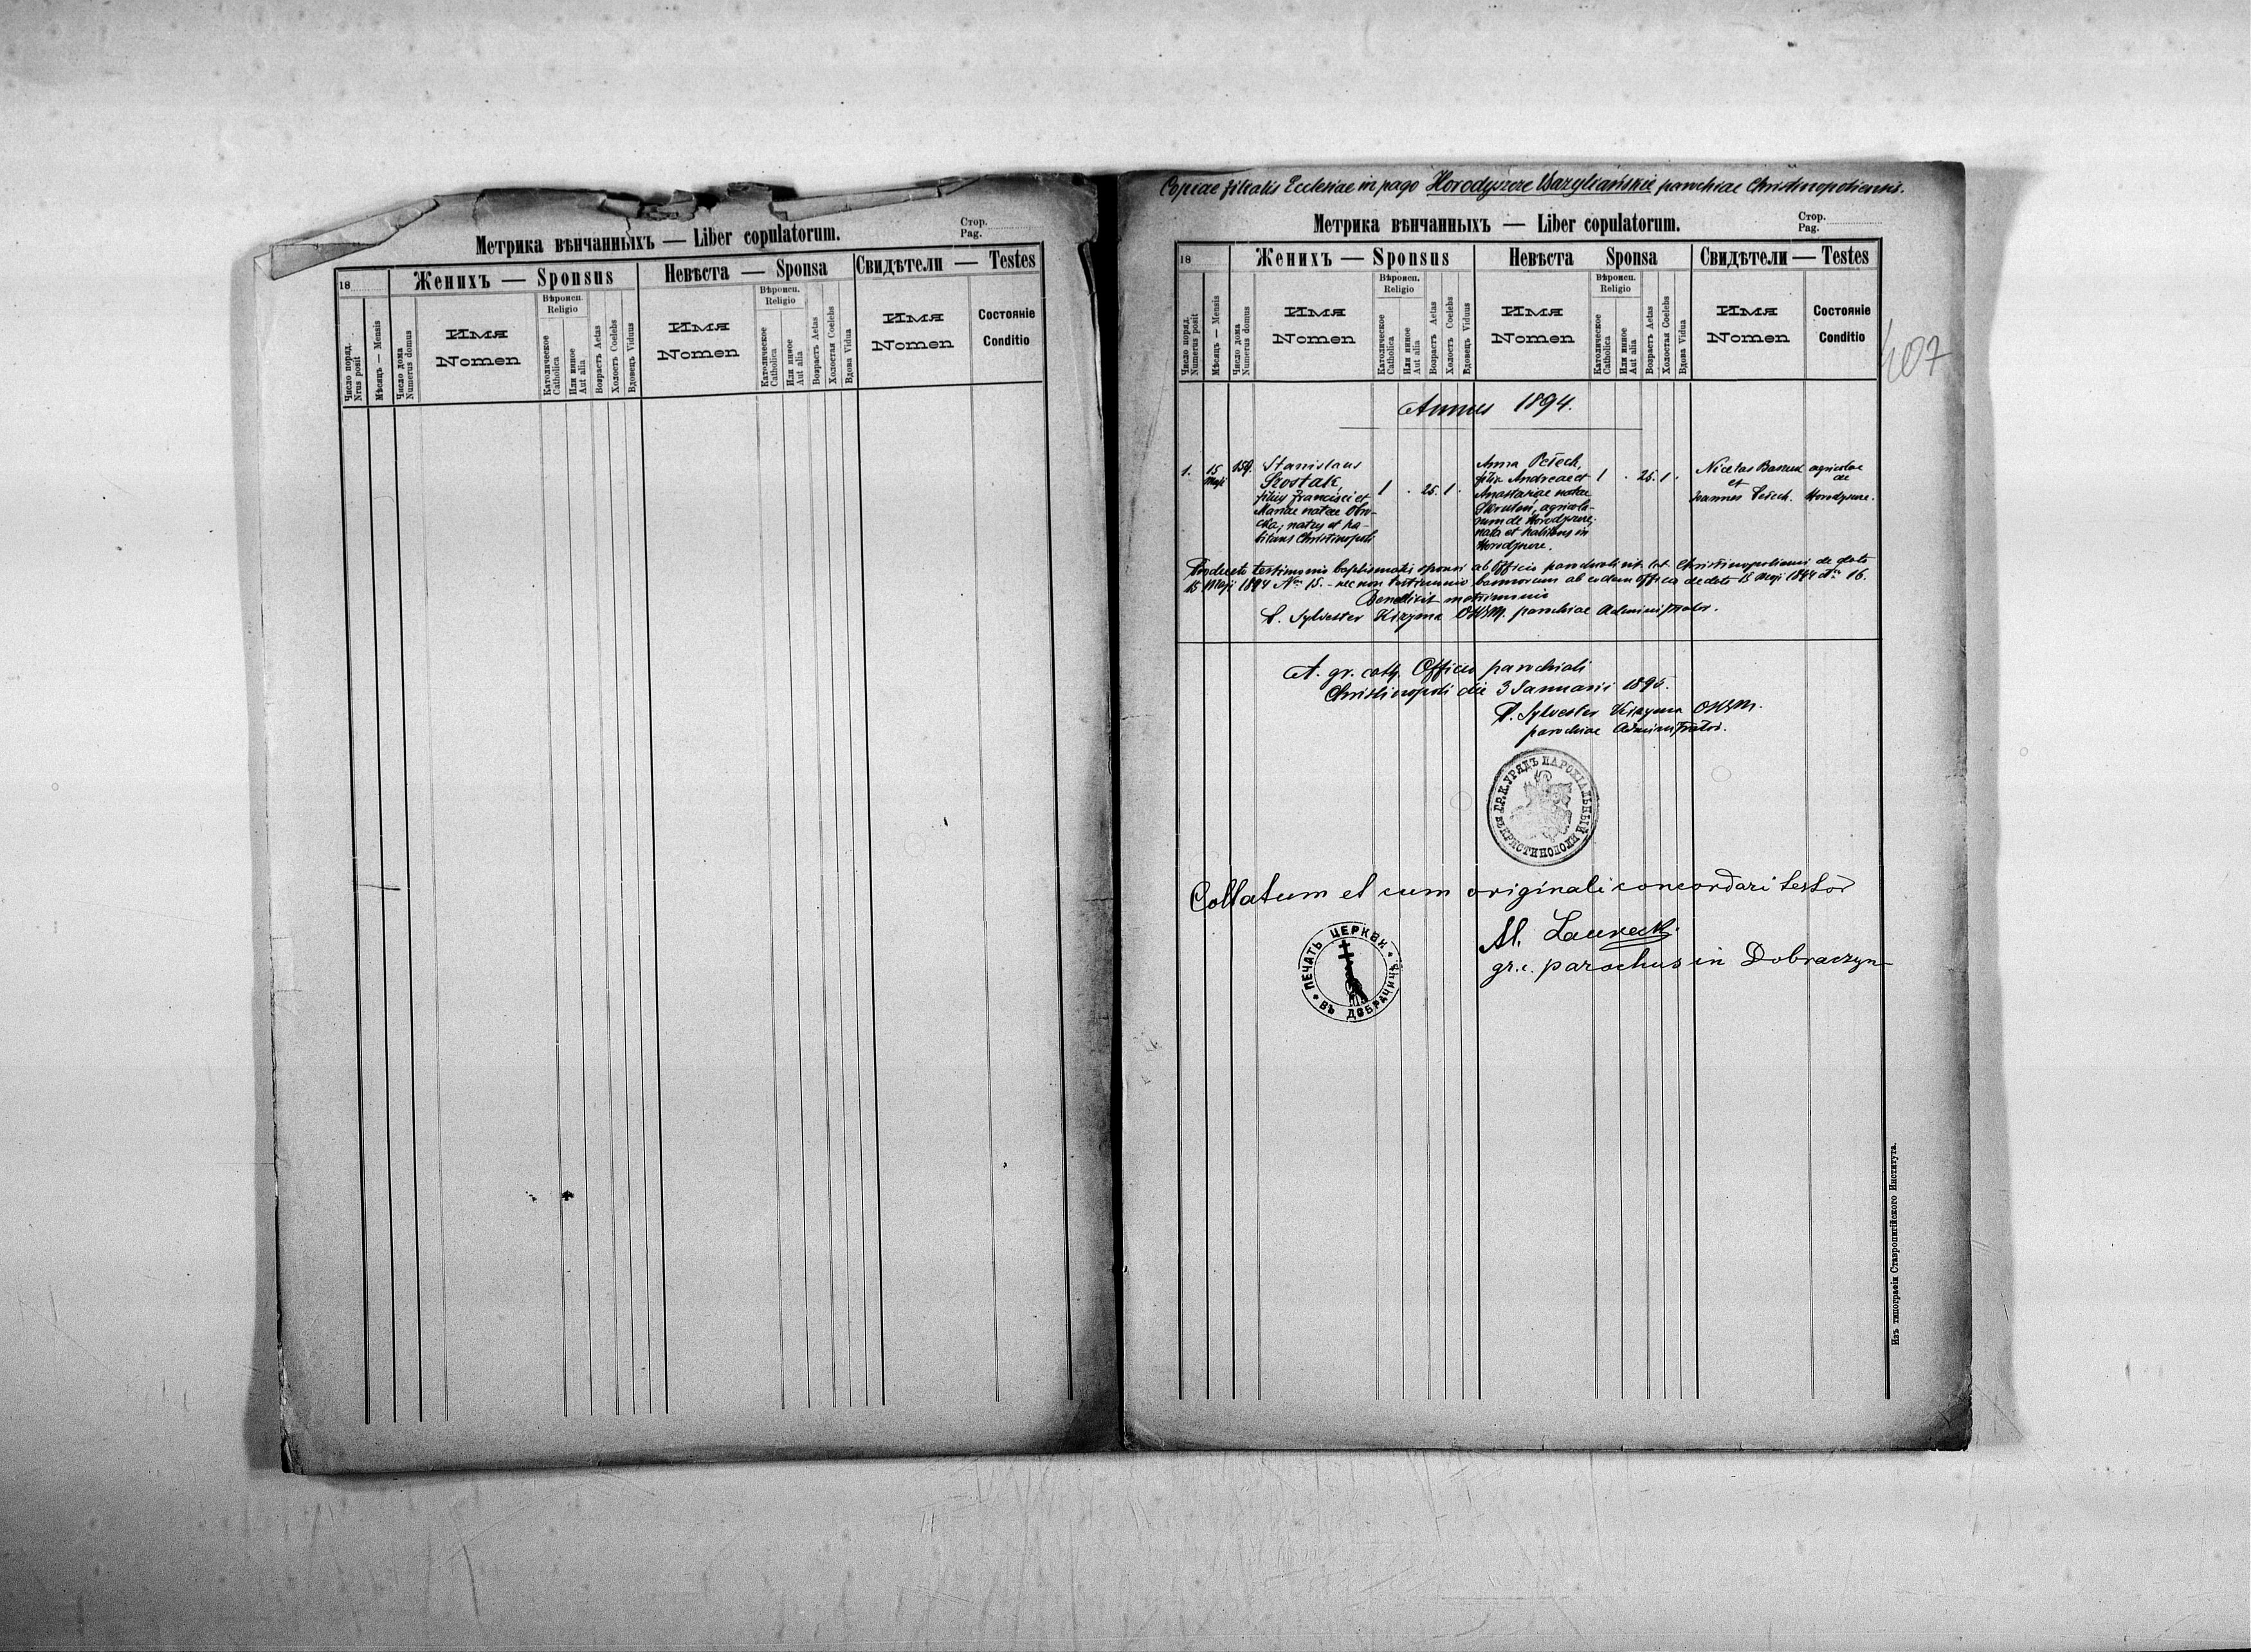 Стор.
Pag.
Метрика вѣнчанныхъ — Liber copulatorum.
18
Женихъ — Sponsus
Невѣста — Sponsa
Свидѣтели — Testes
Число поряд.
Nrus posit
Мѣсяцъ — Mensis
Число дома
Numerus domus
Имя
Nomen
Вѣроисп.
Religio
Католическое
Catholica
Или иное
Aut alia
Возрастъ Aetas
Холостъ Coelebs
Вдовецъ Viduus
Имя
Nomen
Вѣроисп.
Religio
Католическое
Catholica
Или иное
Aut alia
Возрастъ Aetas
Холостая Coelebs
Вдова Vidua
Имя
Nomen
Состояніе
Conditio
Copiae filialis Ecclesiae in pago Horodyszcze Bazyliańskie parochiae Christinopoliensis.
Метрика вѣнчанныхъ — Liber copulatorum.
Стор.
Pag.
18
Женихъ — Sponsus
Невѣста Sponsa
Свидѣтели — Testes
Число поряд.
Numerus posit
Мѣсяцъ — Mensis
Число дома
Numerus domus
Имя
Nomen
Вѣроисп.
Religio
Католическое
Catholica
Или иное
Aut alia
Возрастъ Aetas
Холостъ Coelebs
Вдовецъ Viduus
Имя
Nomen
Вѣроисп.
Religio
Католическое
Catholica
Или иное
Aut alia
Возрастъ Aetas
Холостая Coelebs
Вдова Vidua
Имя
Nomen
Состояніе
Conditio
407
Annus 1894.
1.
15
Maji
159.
Stanislaus
Szostak,
filius Francisci et
Mariae natae
natus et ha-
bitans Christinopoli
1 . 25. 1 .
Anna Petech,
filia Andreae et
Anastasiae natae
agricola-
rum de Horodyszcze,
nata et habitans in
Horodyszcze.
1 . 25. 1 .
Nicetas
et
Joannes Petech.
agricolae
de
Horodyszcze.
Producto testimonio baptismatis sponsi ab Officio parochiali rit. lat. Christinopoliensi de dato
15 Maji 1894 Nro 15. — nec non testimonio bannorum ab eodem officio de dato 15 Maji 1894 Nro 16.
Benedixit matrimonio
P. Sylvester Kizyma OSBM. parochiae Administrator.
A. gr. cath. Officio parochiali
Christinopoli die 3 Januarii 1895.
P. Sylvester Kizyma OSBM.
parochiae Administrator.
ГР. К. УРЯДЪ ПАРОХІАЛЬНЫЙ ВЪ КРИСТИНОПОЛИ
Collatum et cum originali concordari testor
gr. c. parochus in Dobraczyn
ПЕЧАТЬ ЦЕРКВИ ВЪ ДОБРАЧИНѢ
Изъ типографіи Ставропигійского Института.